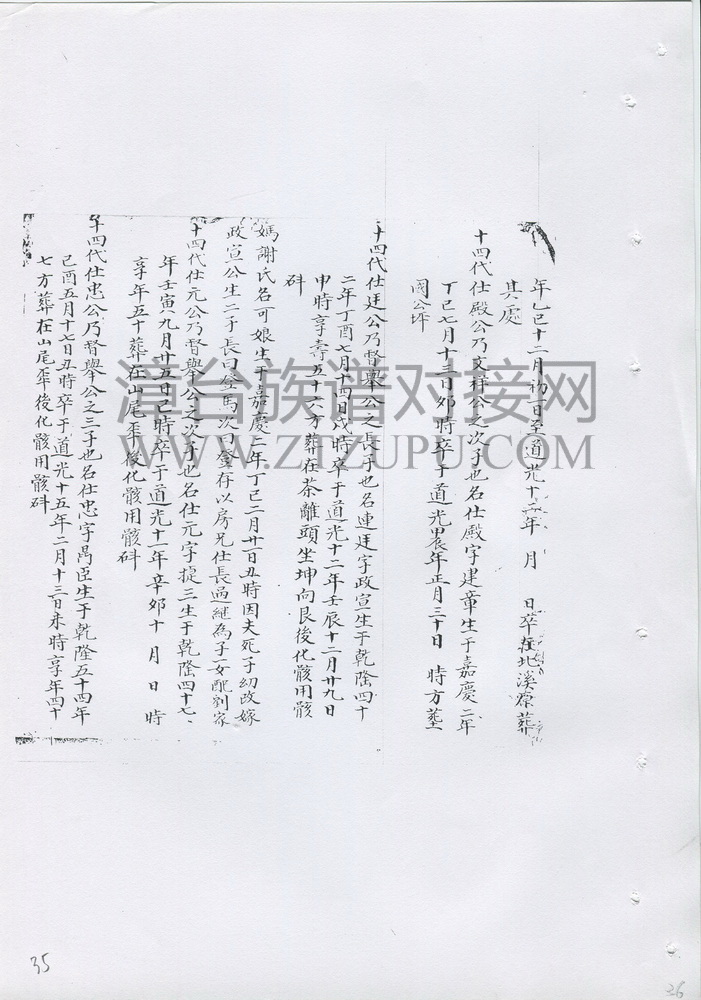 年乙巳十二月初一日至道光十年　月　日卒在北溪葬
其處
十四代仕殿公乃文祥公之次子也名仕殿字建章生于嘉慶二年
丁巳七月十三日夘時卒于道光年正月三十日　時方塟
國公
十四代仕廷公乃督舉公之長子也名連廷字政宣生于乾隆四十
二年丁酉七月十四日戌時卒于道光十二年壬辰十二月廿九日
申時享壽五十六方葬在茶離頭坐坤向艮後化骸用骸
碑
媽謝氏名可娘生于嘉慶二年丁巳二月廿一日丑時因夫死子幼改嫁
政宣公生二子長曰登馬次曰登存以房兄仕長過継為子一女配劉家
十四代仕元公乃督舉公之次子也名仕元字捷三生于乾隆四十七
年壬寅九月廿五日巳時卒于道光十一年辛夘十月　日　時
享年五十葬在山尾後化骸用骸碑
十四代仕忠公乃督舉公之三子也名仕忠字禼臣生于乾隆五十四年
己酉五月十七日丑時卒于道光十五年二月十三日未時享年四十
七方葬在山尾後化骸用骸碑
漳台族谱对接网
WWW.ZTZUPU.COM
35
36